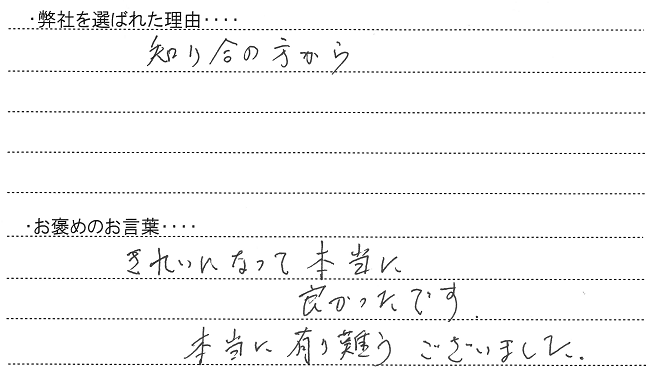 ・弊社を選ばれた理由････
知り合の方から
・お褒めのお言葉････
きれいになって本当に
良かったです.
本当に有り難うございました.